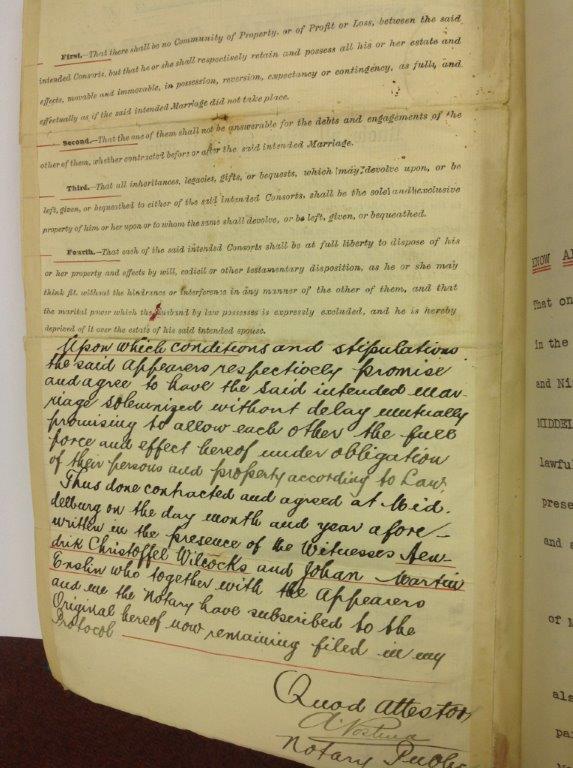 First.—That there shall be no Community of Property, or of Profit or Loss, between the said
intended Consorts, but that he or she shall respectively retain and possess all his or her estate and
effects, movable and immovable, in possession, reversion, expectancy or contingency, as fully, and
effectually as if the said intended Marriage did not take place.
Second.—That the one of them shall not be answerable for the debts and engagements of the
other of them, whether contracted before or after the said intended Marriage.
Third.—That all inheritances, legacies, gifts, or bequests, which may devolve upon, or be
left, given, or bequeathed to either of the said intended Consorts, shall be the sole and exclusive
property of him or her upon or to whom the same shall devolve, or be left, given, or bequeathed.
Fourth.—That each of the said intended Consorts shall be at full liberty to dispose of his
or her property and effects by will, codicil or other testamentary disposition, as he or she may
think fit, without the hindrance or interference in any manner of the other of them, and that
the marital power which the husband by law possesses is expressly excluded, and he is hereby
deprived of it over the estate of his said intended spouse.
Upon which conditions and stipulations
the said Appearers respectively promise
and agree to have the said intended mar-
riage solemnized without delay mutually
promising to allow each other the full
force and effect hereof under obligation
of their persons and property according to Law.
Thus done contracted and agreed at Mid.
delburg on the day month and year afore-
written in the presence of the Witnesses Hen-
drik Christoffel Wilcocks and Johan Martin
Enslin who together with the Appearers
and me the Notary have subscribed to the
Original hereof now remaining filed in my
Protocol
Quod Attestor
Notary Public
KNOW A
That on
in the
and Ni
MIDDEL
lawfu
prese
and a
of M
als
pa